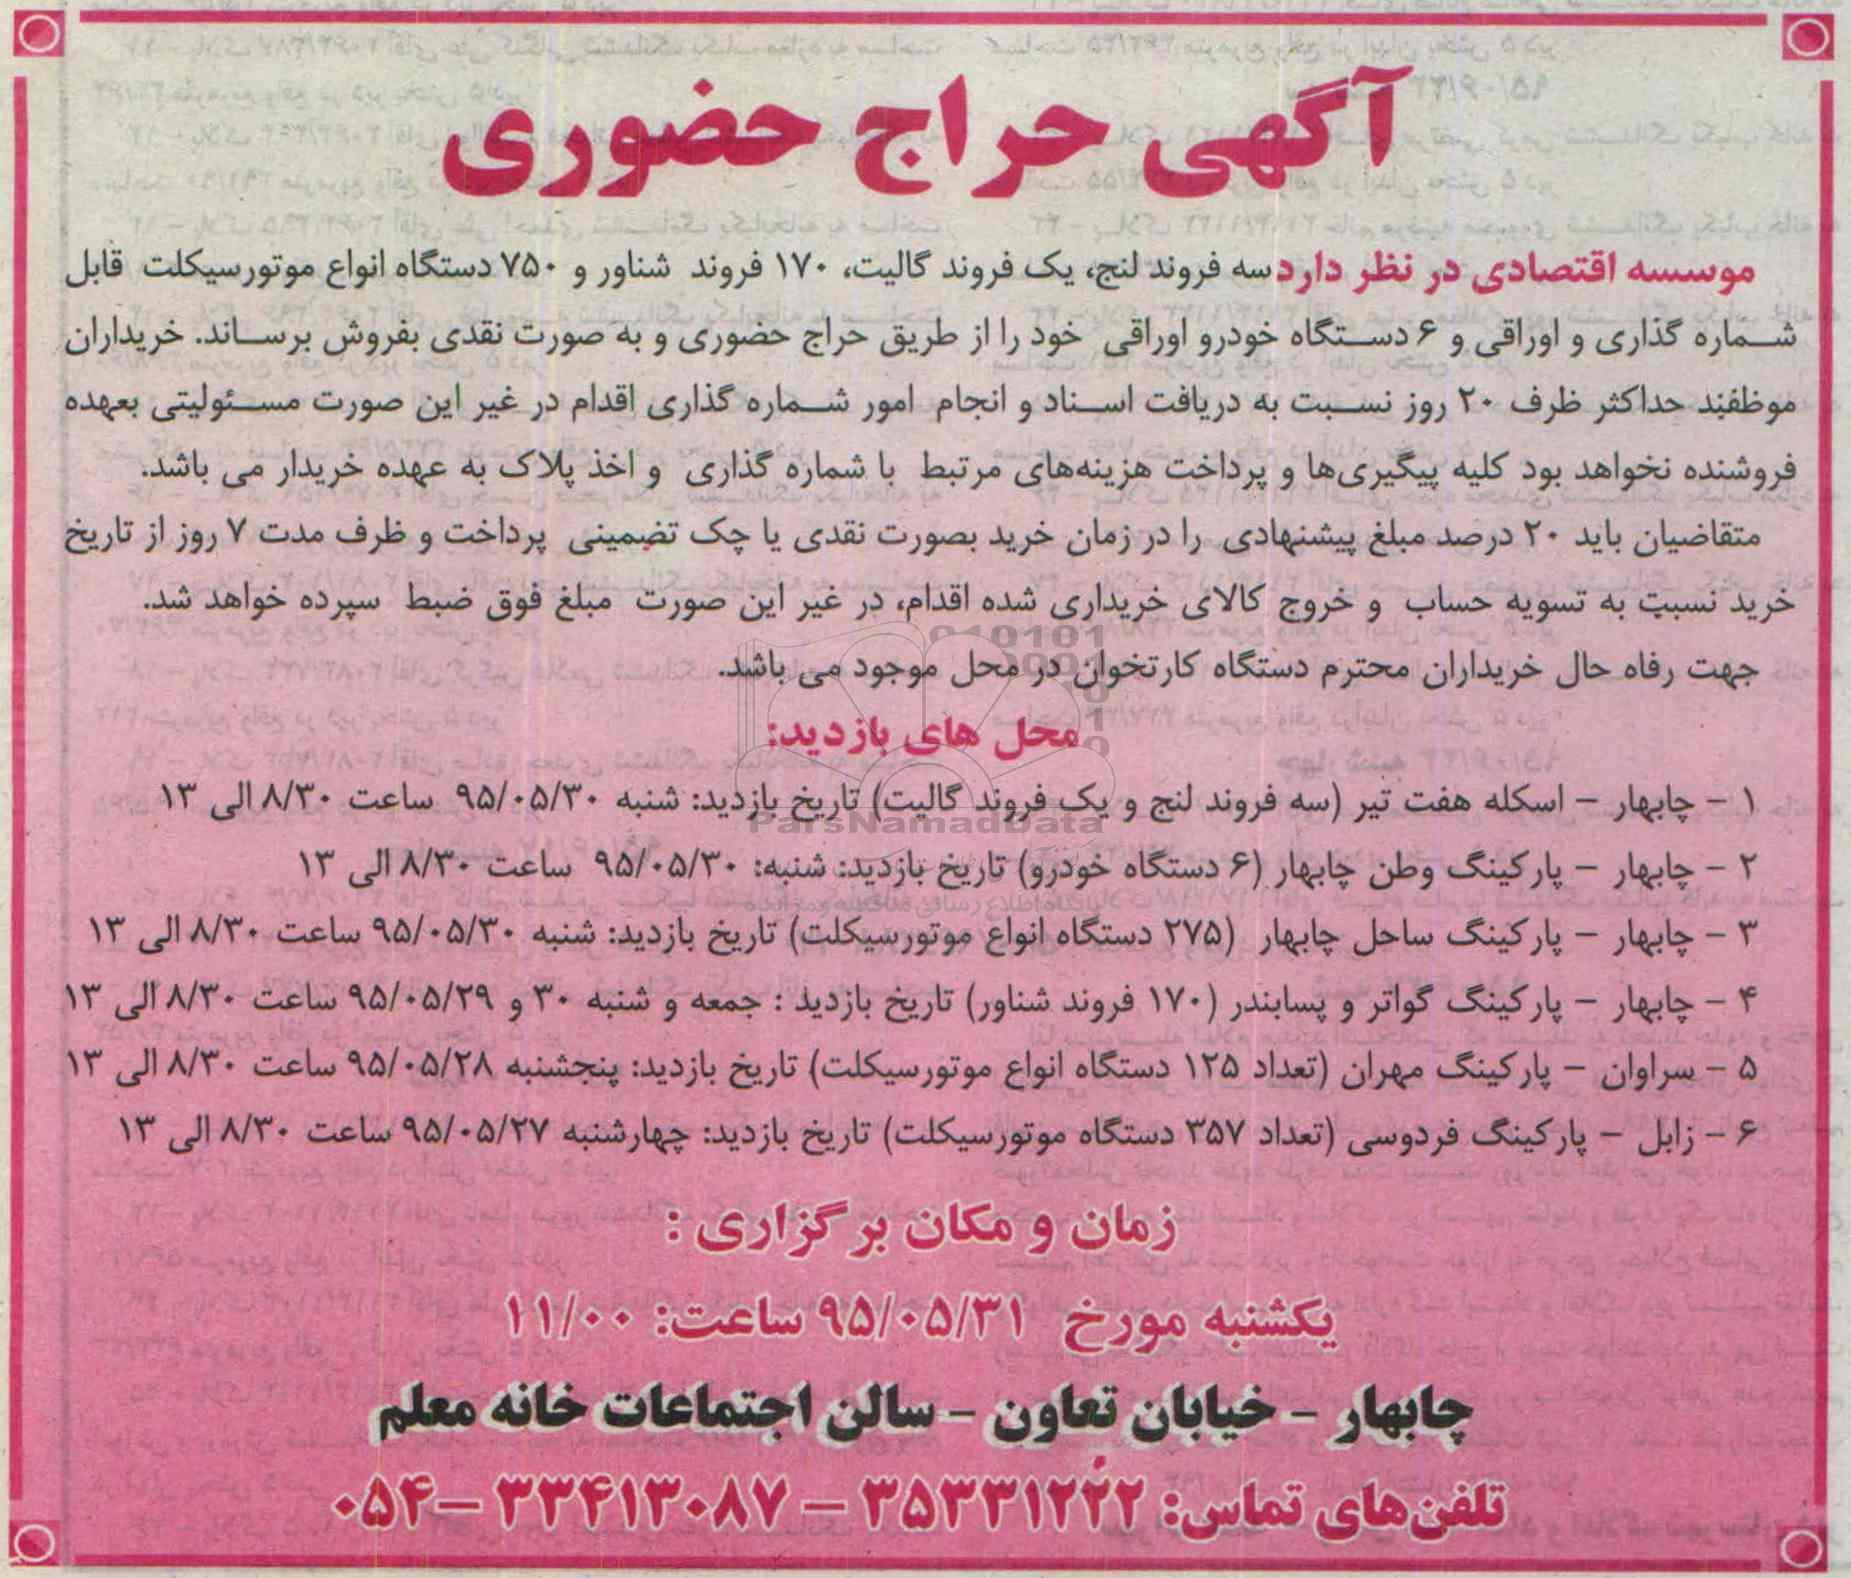 آگهی حراج حضوری
موسسه اقتصادی در نظر دارد سه فروند لنج، یک فروند گالیت، ۱۷۰ فروند شناور و ۷۵۰ دستگاه انواع موتورسیکلت قابل
شماره گذاری و اوراقی و ۶ دستگاه خودرو اوراقی خود را از طریق حراج حضوری و به صورت نقدی بفروش برساند. خریداران
موظفند حداکثر ظرف ۲۰ روز نسبت به دریافت اسناد و انجام امور شماره گذاری اقدام در غیر این صورت مسئولیتی بعهده
فروشنده نخواهد بود کلیه پیگیری‌ها و پرداخت هزینه‌های مرتبط با شماره گذاری و اخذ پلاک به عهده خریدار می باشد.
متقاضیان باید ۲۰ درصد مبلغ پیشنهادی را در زمان خرید بصورت نقدی یا چک تضمینی پرداخت و ظرف مدت ۷ روز از تاریخ
خرید نسبت به تسویه حساب و خروج کالای خریداری شده اقدام، در غیر این صورت مبلغ فوق ضبط سپرده خواهد شد.
جهت رفاه حال خریداران محترم دستگاه کارتخوان در محل موجود می باشد.
محل های بازدید:
۱ - چابهار - اسکله هفت تیر (سه فروند لنج و یک فروند گالیت) تاریخ بازدید: شنبه ۹۵/۰۵/۳۰ ساعت ۸/۳۰ الی ۱۳
ParsNamadData
۲ - چابهار - پارکینگ وطن چابهار (۶ دستگاه خودرو) تاریخ بازدید: شنبه: ۹۵/۰۵/۳۰ ساعت ۸/۳۰ الی ۱۳
پایگاه اطلاع رسانی مناقصه و مزایده
۳ - چابهار - پارکینگ ساحل چابهار (۲۷۵ دستگاه انواع موتورسیکلت) تاریخ بازدید: شنبه ۹۵/۰۵/۳۰ ساعت ۸/۳۰ الی ۱۳
۴ - چابهار - پارکینگ گواتر و پسابندر (۱۷۰ فروند شناور) تاریخ بازدید : جمعه و شنبه ۳۰ و ۹۵/۰۵/۲۹ ساعت ۸/۳۰ الی ۱۳
۵ - سراوان - پارکینگ مهران (تعداد ۱۲۵ دستگاه انواع موتورسیکلت) تاریخ بازدید: پنجشنبه ۹۵/۰۵/۲۸ ساعت ۸/۳۰ الی ۱۳
۶ - زابل - پارکینگ فردوسی (تعداد ۳۵۷ دستگاه موتورسیکلت) تاریخ بازدید: چهارشنبه ۹۵/۰۵/۲۷ ساعت ۸/۳۰ الی ۱۳
زمان و مکان برگزاری :
یکشنبه مورخ ۹۵/۰۵/۳۱ ساعت: ۱۱/۰۰
چابهار - خیابان تعاون - سالن اجتماعات خانه معلم
تلفن‌های تماس: ۳۵۳۳۱۲۲۲ - ۳۳۴۱۳۰۸۷ - ۰۵۴